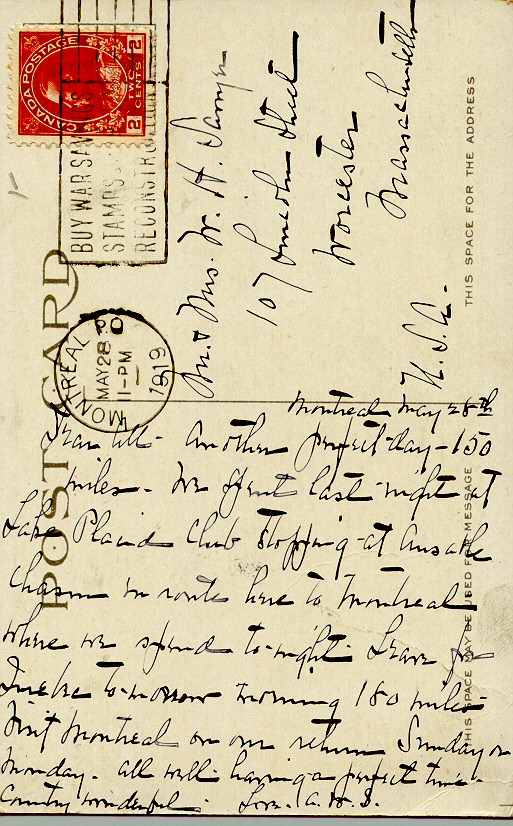 POST CARD
CANADA POSTAGE
2 CENTS 2
TWO
BUY WAR SAVINGS
STAMPS
RECONSTRUCTION
MONTREAL P.Q.
MAY 28
11-PM
1919
THIS SPACE FOR THE ADDRESS
THIS SPACE MAY BE USED FOR MESSAGE
Mr & Mrs. W. H. Sawyer
107 Lincoln Street
Worcester
Massachusetts
U.S.A.
Montreal May 28th
Dear All - Another perfect day - 150
miles. We spent last night at
Lake Placid Club stopping at Ausable
Chasm en route here to Montreal
where we spend to-night. Leave for
Quebec to-morrow morning 180 miles.
Visit Montreal on our return Sunday or
Monday. All well - having a perfect time.
Country wonderful. Love.